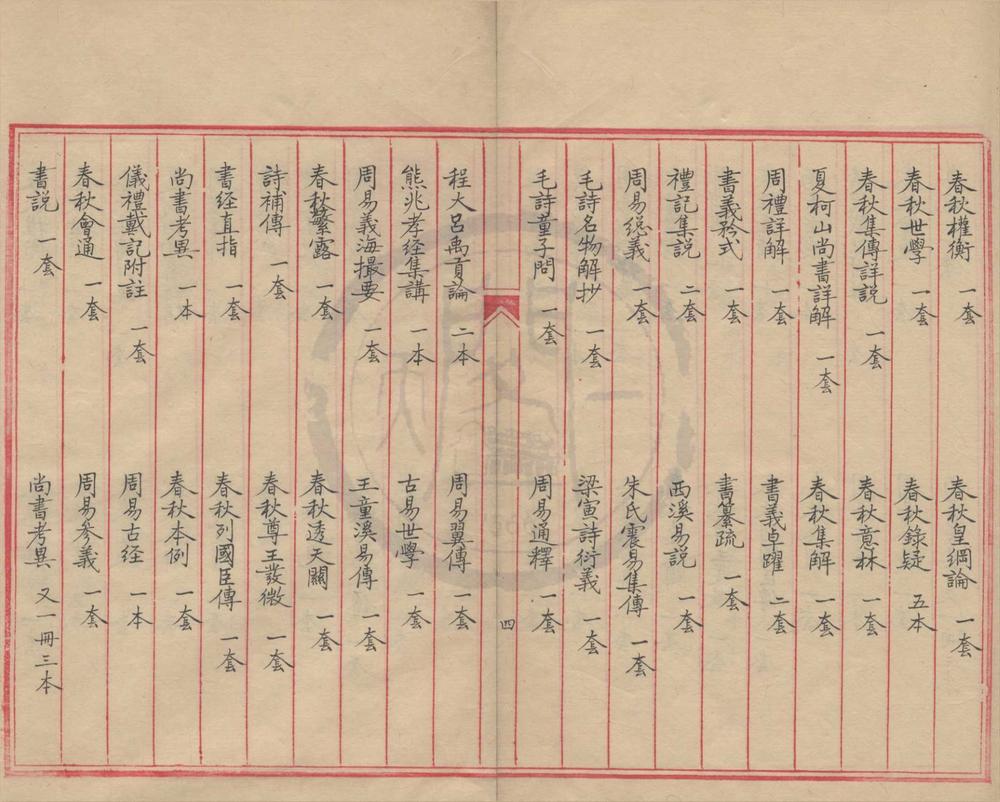 春秋權衡 一套 春秋皇綱論 一套
春秋世學 一套 春秋錄疑 五本
春秋集傳詳説 一套 春秋意林 一套
夏柯山尚書詳解 一套 春秋集解 一套
周禮詳解 一套 書義卓躍 二套
書義矜式 一套 書纂疏 一套
禮記集説 二套 西溪易説 一套
周易總義 一套 朱氏震易集傳 一套
毛詩名物解抄 一套 梁寅詩衍義 一套
毛詩童子問 一套 周易通釋 一套
四
程大呂禹貢論 二本 周易翼傳 一套
熊兆孝経集講 一本 古易世學 一套
周易義海撮要 一套 王童溪易傳 一套
春秋繁露 一套 春秋透天關 一套
詩補傳 一套 春秋尊王發微 一套
書経直指 一套 春秋列國臣傳 一套
尚書考異 一本 春秋本例 一套
儀禮戴記附註 一套 周易古経 一本
春秋會通 一套 周易參義 一套
書説 一套 尚書考異 又一冊三本